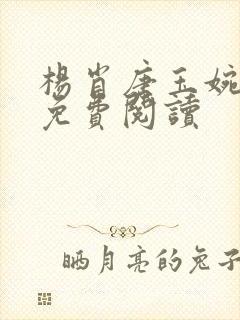 楊肖唐玉婉
免費閱讀
晒月亮的兔子